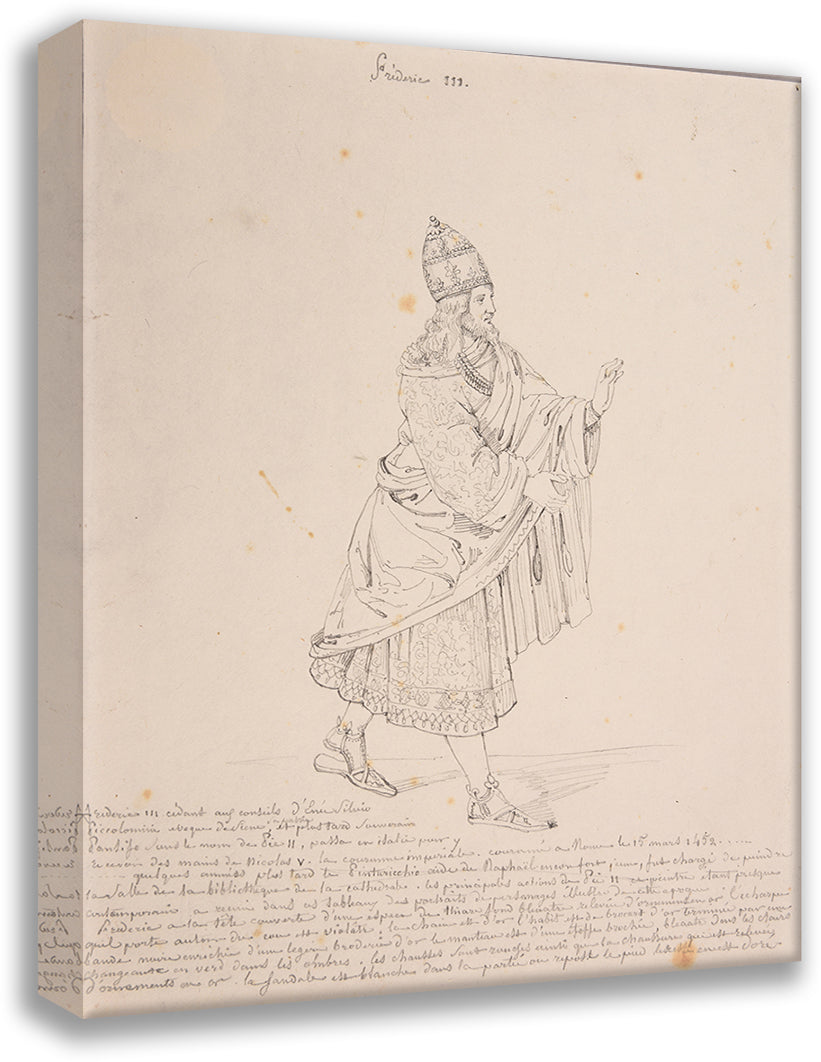 Fréderic III.
Frederic III cedant aux conseils d'Enée Silvio
Piccolomini eveque de Siene, et plus tard Souverain
Pontife sous le nom de Pie II, passa en italie pour y
recevoir des mains de Nicolas V. la couronne imperiale. couronné a Rome le 15 mars 1452.....
quelques années plus tard le Pinturicchio aidé de Raphaël encore fort jeune, fut chargé de peindre
la salle de la bibliothèque de la cathedrale. les principales actions de Pie II ce peintre etant presque
contemporain a reuni dans ces tableaux des portraits de personages illustres de cette epoque
Frederic a la tête couverte d'une espece de thiare fond bleuatre relevée d'ornemens en or. l'écharpe
qu'il porte autour du cou est violete. la chaine est d'or l'habit est de brocart d'or terminé par une
bande noire enrichie d'une legere broderie d'or le manteau est d'une etoffe brochée, bleuatre dans les clairs
changeante en verd dans les ombres. les chausses sont rouges ainsi que la chaussure qui est relevée
d'ornements en or. la sandale est blanche dans la partie ou repose le pied en est doré